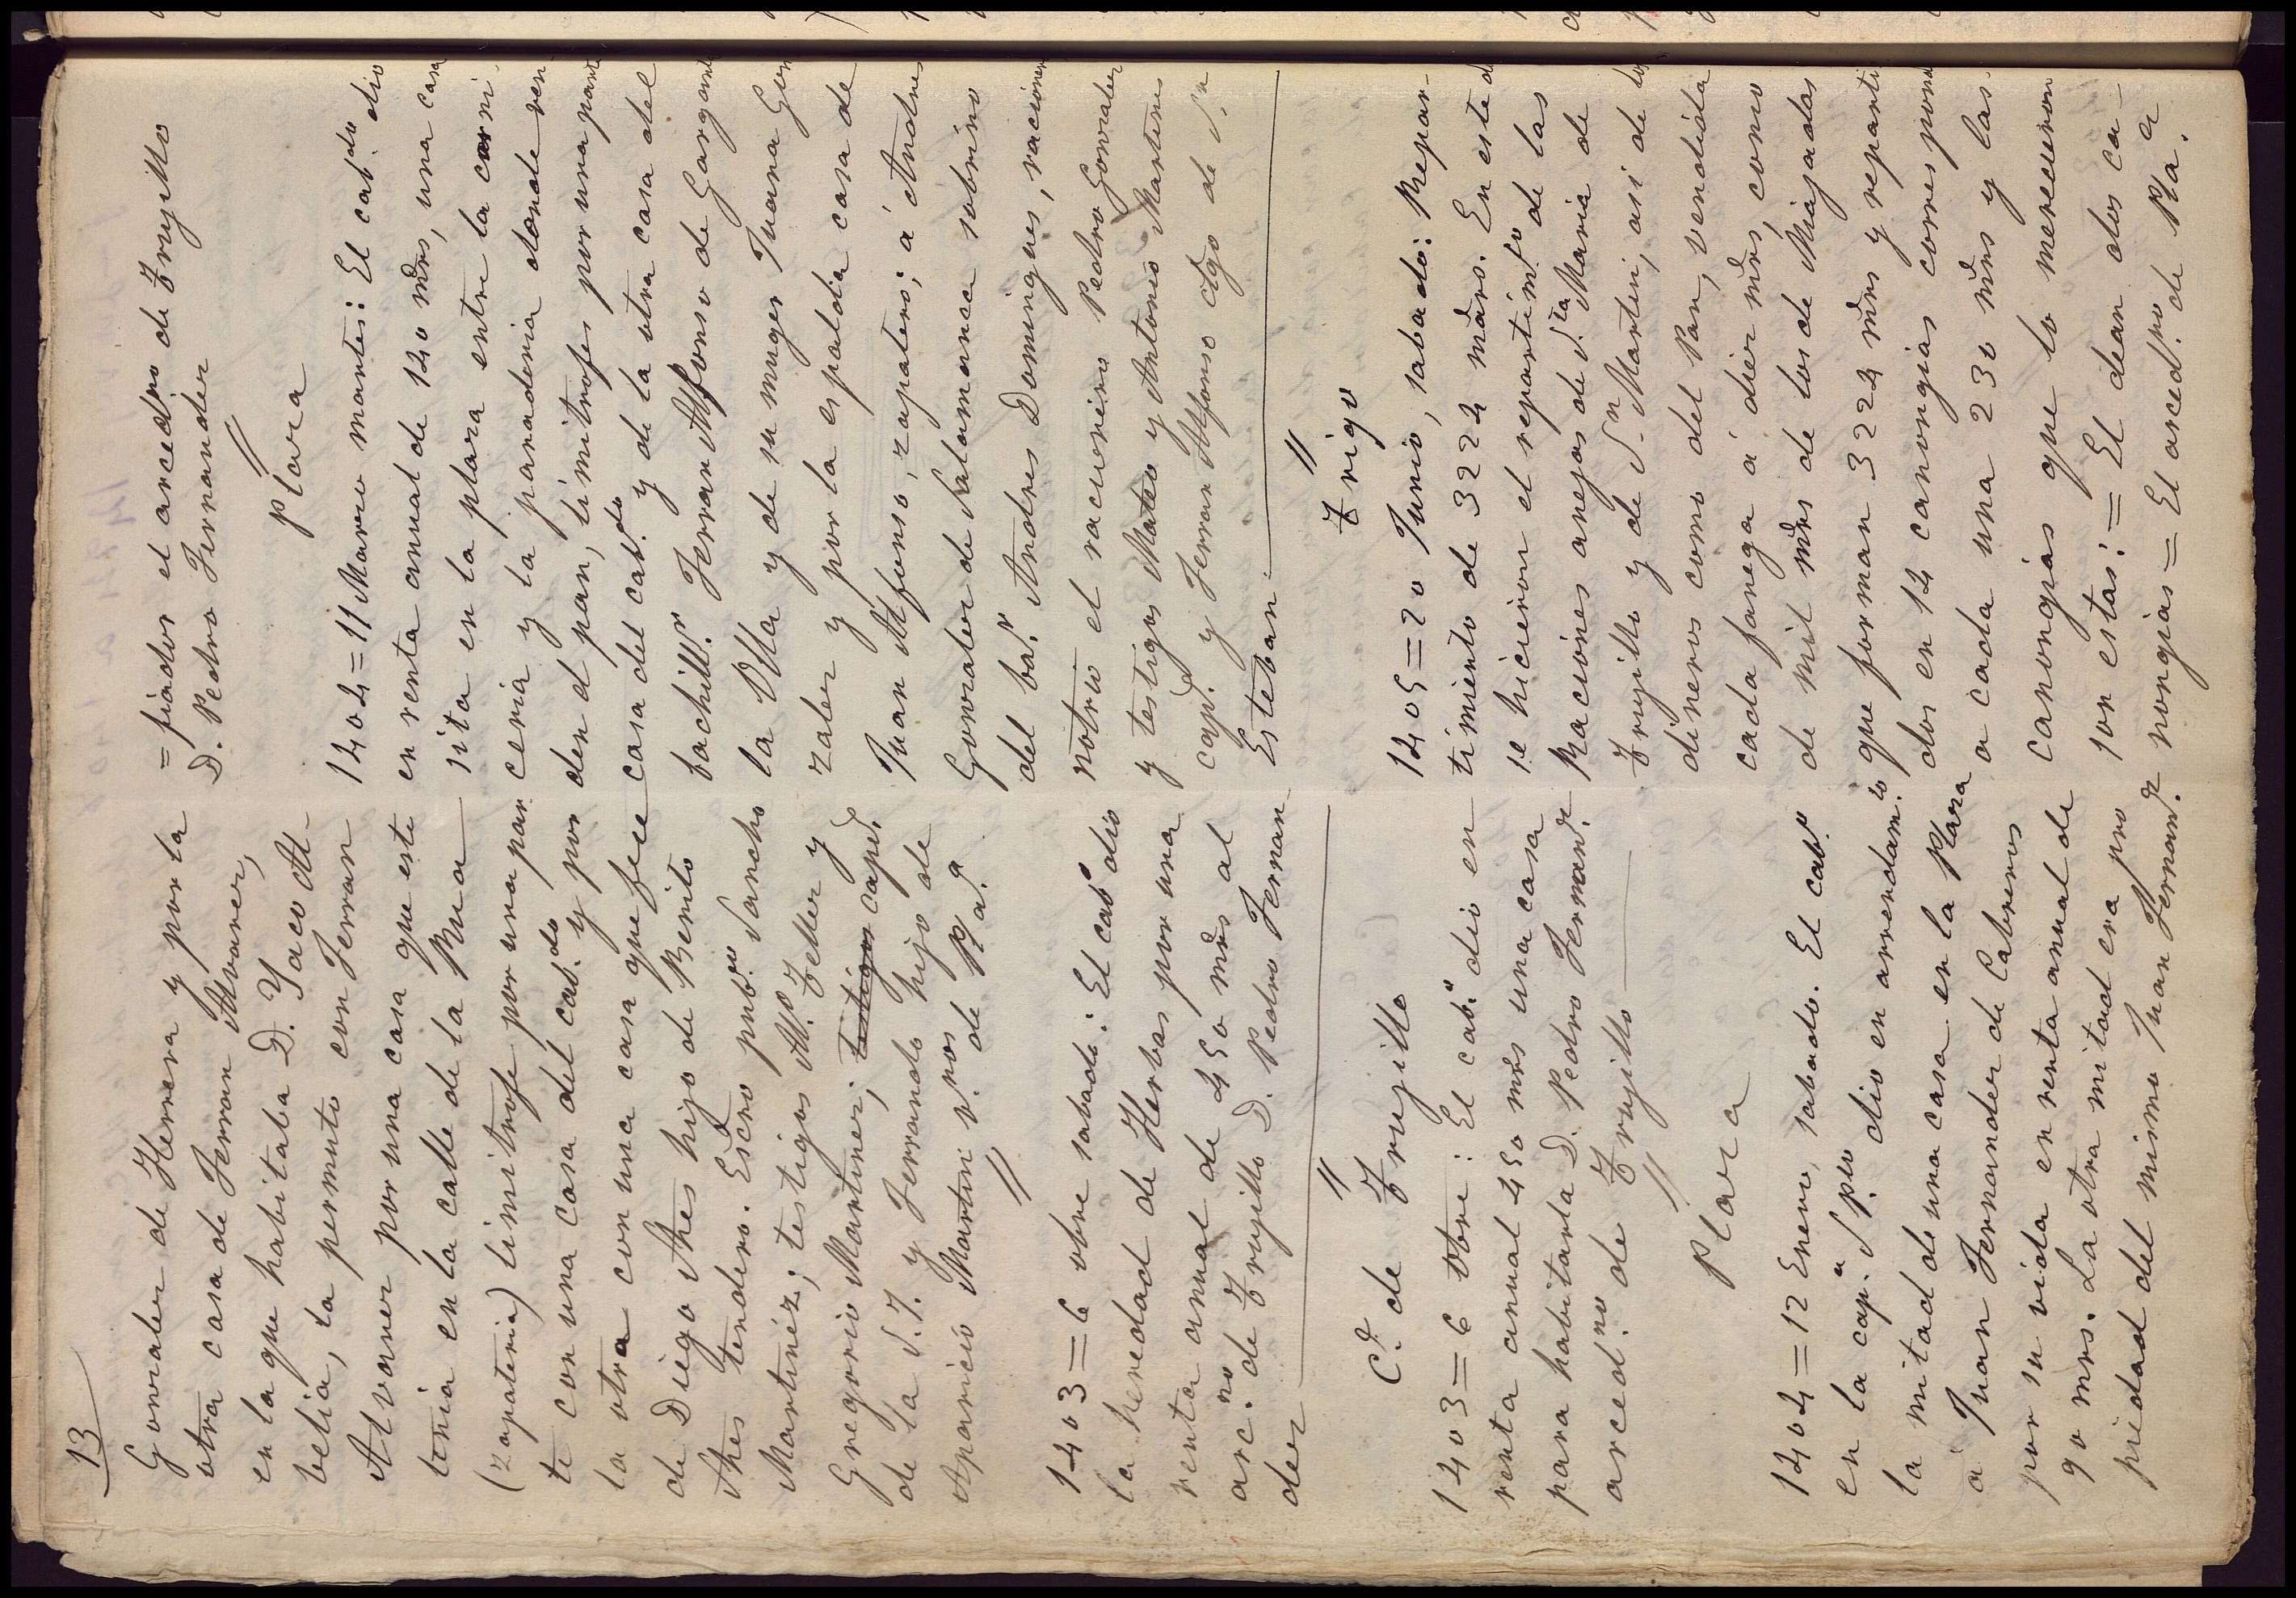 13
Gonzalez de Herrera y por la
otra casa de Ferran Alvarez,
en la que habitaba D. Yaco Al-
belia, la permuto con Ferran
Alvarez por una casa que este
tenia en la calle de la Rua
(zapateria) limitrofe por una par
te con una casa del cab.do y por
la otra con una casa que fue
de Diego Ahes hijo de Benito
Ahes tendero. Escno pub.co Sancho
Martinez; testigos Alf.o Tellez y
Gregorio Martinez; testigos capp.s
de la S.I. y Ferrando hijo de
Aparicio Martin v.nos de Pla.a
=
1403=6 obre sabado: El cab.o dio
la heredad de Herbas por una
renta anual de 450 mrs al
arc.no de Trujillo D. Pedro Fernan
dez
=
C.e de Trujillo
1403=6 Obre: El cab.o dio en
renta anual 450 mrs una casa
para habitarla D. Pedro Fernand.z
arced.no de Trujillo
=
Plaza
1404=12 Enero, sabado. El cab.o
en la cap.a S.Po dio en arrendam.to
la mitad de una casa en la Plaza
a Juan Fernandez de Cabreros
por su vida en renta anual de
90 mrs. La otra mitad era pro
piedad del mismo Juan Fernand.z
=fiador el arced.no de Trujillo
D. Pedro Fernandez
=
Plaza
1404=11 Marzo martes: El cab.do dio
en renta anual de 140 mrs, una casa
sita en la plaza entre la carni-
ceria y la panaderia donde ven-
den el pan, limitrofes por una parte
casa del cab.do y de la otra casa del
bachill.r Ferran Alfonso de Gargant
la Olla y de su muger Juana Gon
zalez y por la espalda casa de
Juan Alfonso, zapatero; á Andres
Gonzalez de Salamanca sobrino
del ba.r Andres Domingues, racionero
notrio el racionero Pedro Gonzalez
y testigos Mateo y Antonio Martines
capp.s y Ferran Alfonso clgo de S.n
Esteban
=
Trigo
1405=20 Junio, sabado: Repar-
timiento de 3224 mrs. En este d
se hicieron el repartim.to de las
Raciones anejas de S.ta Maria de
Trujillo y de S.n Martin, asi de los
dineros como del Pan, vendida
cada fanega á diez mrs, como
de mil mrs de los de Miajadas
que forman 3224 mrs y reparti
dos en 14 canongias correspond
a cada una 230 mrs y las
canongias que lo merecieron
son estas: = El dean dos ca-
nongias = El arced.no de Pla.a